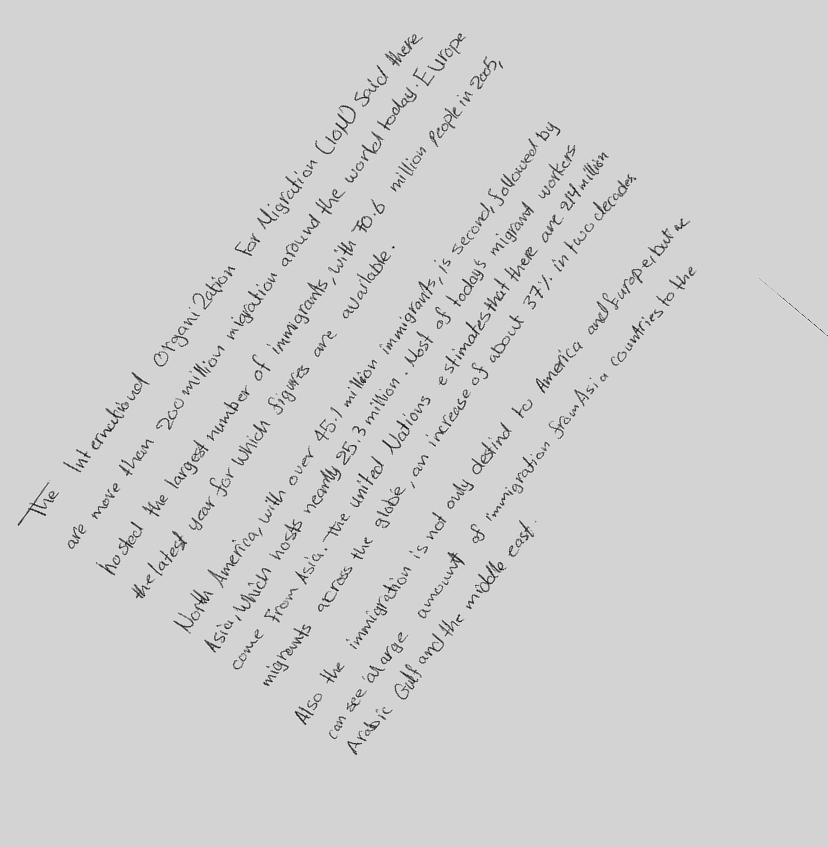 The International Organization for Migration (IOM) said there
are more than 200 million migration around the world today. Europe
hosted the largest number of immigrants, with 70.6 million people in 2005,
the latest year for which figures are available.
North America, with over 45.1 million immigrants, is second, followed by
Asia, which hosts nearly 25.3 million. Most of today's migrant workers
come from Asia. The united Nations estimates that there are 214 million
migrants across the globe, an increase of about 37% in two decades.
Also the immigration is not only destind to America and Europe, but we
can see alarge amount of immigration from Asia countries to the
Arabic Gulf and the middle east.